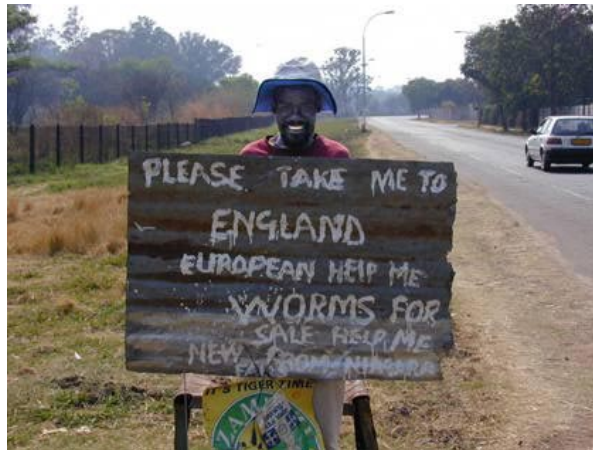 PLEASE TAKE ME TO
ENGLAND
EUROPEAN HELP ME
WORMS FOR
SALE HELP ME
NEW FROM NIAGARA
IT'S TIGER TIME
ZAM